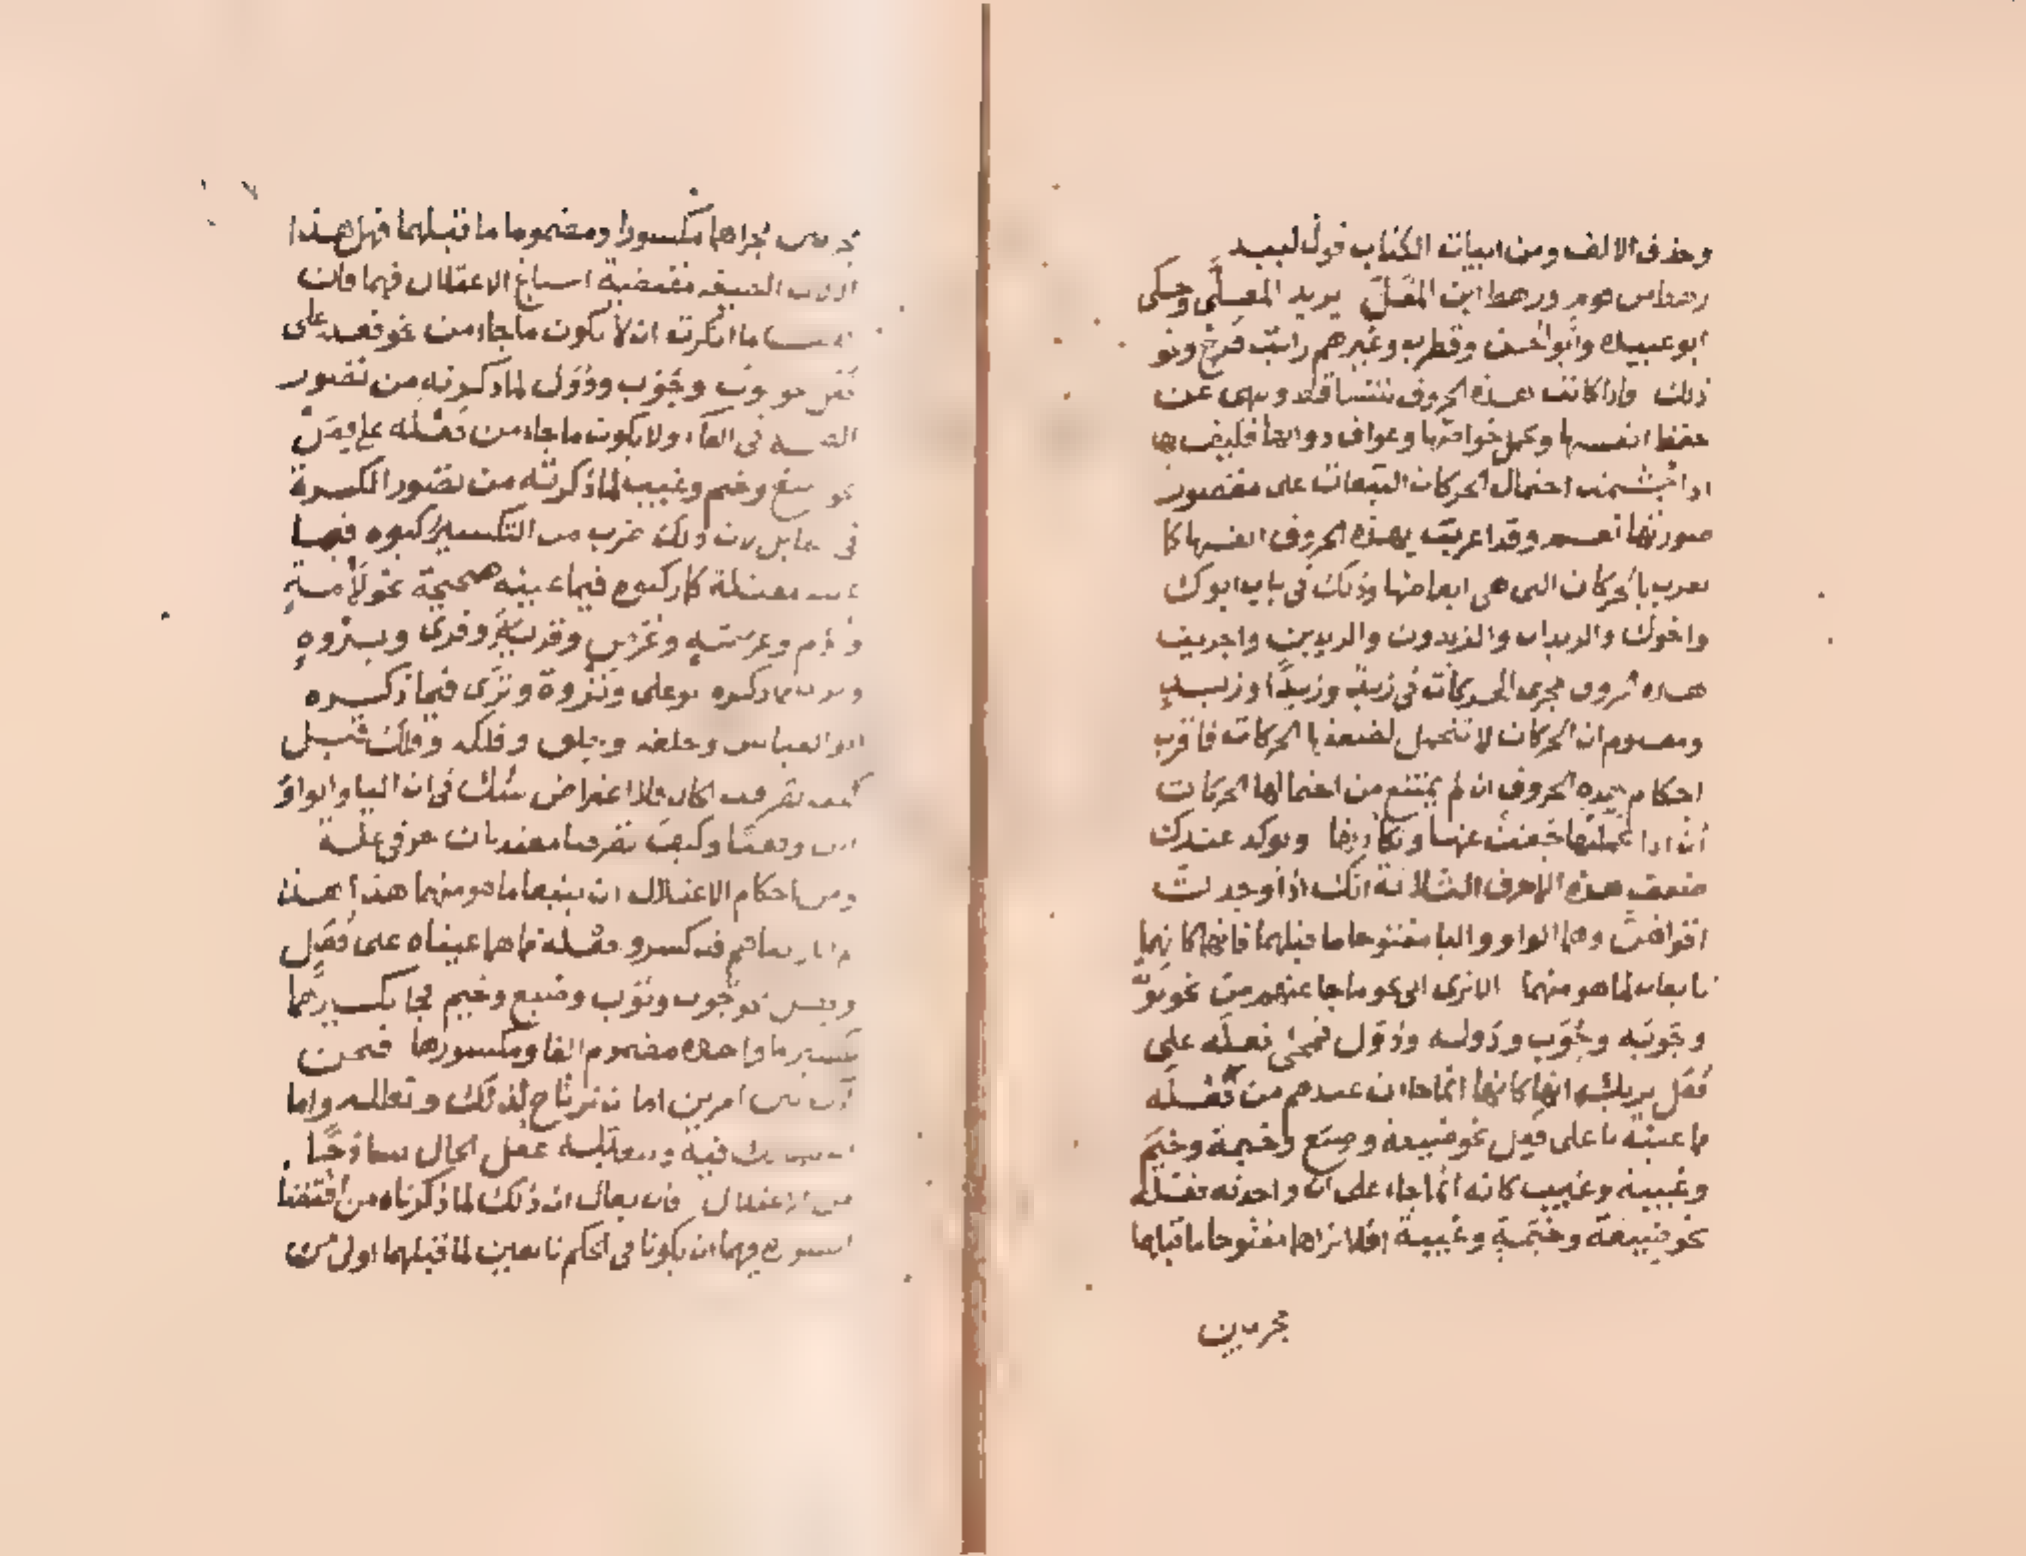 وحذف الالف ومن ابيات الكتاب قول لبيد
رهط مرجوم ورهط ابن المعَلّ يريد المعلَّى وحكى
ابو عبيدة وابو الحسن وقطرب وغيرهم رايت فَرَجْ ونحو
ذلك فاذا كانت هذه الحروف تتساقط وتهى عن
حفظ انفسها وتحمل خواصها وعوانى ذواتها فكيف بها
اذا جُشّمت احتمال الحركات النيفات على مقصور
صورتها نعم وقد اعرب بهذه الحروف انفسها كما
يعرب بالحركات التى هى ابعاضها وذلك فى باب ابوك
واخوك والزيدان والزيدون والزيدين واجريت
هذه الحروف مجرى الحركات فى زيدٌ وزيدًا وزيدٍ
ومعلوم ان الحركات لا تتحمل لضعفها الحركات فاقرب
احكام هذه الحروف ان لم يمتنع من احتمالها الحركات
انه اذا تحملتها جفت عنها وتكاءدتها ويوكد عندك
ضعف هذه الاحرف الثلاثة انك اذا وجدت
اقواهن وهما الواو واليا مفتوحا ما قبلهما فانهما كانهما
تابعان لما هو منهما الا ترى الى نحو ما جا عنهم من نحو نَوبة
ونُوَب وجَوبة وجُوَب ودَولة ودُوَل فمجى فَعلة على
فُعَل يريك انها كانها انما جاات عندهم من فُعْلَه
ما عينه يا على فِعَل نحو ضيعة وضِيَع وخيمة وخِيَم
وعَيبة وعِيَب كانه انما جاء على ان واحدته فِعْلة
نحو ضِيعة وخِيمة وعِيبة افلا تراهما مفتوحا ما قبلهما
مجريين
مجراهما مكسورا ومضموما ما قبلهما فهل هذا
الصنعة مقتضية اشياع الاعتلال فيهما فان
ما انكرت ان لا يكون ما جاء من نحو فعلة على
فُعَل نحو نُوَب وجُوَب ودُوَل لما ذكرته من تصور
الضمة فى الفاء ولا يكون ما جاء من فَعْلَه على فِعَل
نحو ضيع وخيم وعيب لما ذكرته من تصور الكسرة
فى الفا بل لان ذلك ضرب من التكسير ركبوه فيما
عينه معتلة كما ركبوه فيما عينه صحيحة نحو لَأمة
ولُؤَم وعرصة وعُرَص وقرية وقُرى وبَرْوة
وبُرًى فيما ذكره ابو على ونَزوة ونُزًى فيما ذكره
ابو العباس وحلقه وحِلق وفلكه وفلك قيل
كيف تصرفت الحال فلا اعتراض شك فى ان اليا والواو
اين وقعتا وكيف تصرفتا معتدتان حرفى علة
ومن احكام الاعتلال ان يتبعا ما هو منهما هذا ثم
انا رايناهم قد كسروا فَعْلة مما هما عيناه على فُعَل
وفِعَل نحو جُوَب ونُوَب وضِيَع وخِيَم فجا تكسيرهما
تكسير ما واحده مضموم الفا ومكسورها فنحن
الان بين امرين اما ان نرتاح لذلك ونعلله واما
ان نتهالك فيه ونتقبله غفل الحال ساذجًا
من الاعتلال فان يقال ان ذلك لما ذكرناه من اقتضا
الصورة فيهما ان يكونا فى الحكم تابعين لما قبلهما اولى من